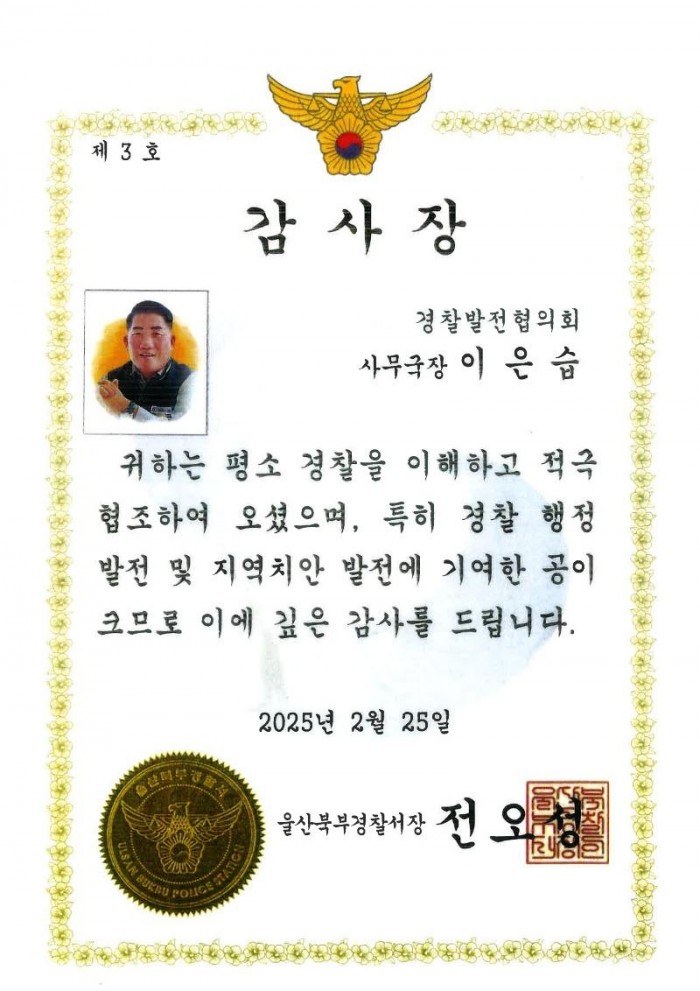 제 3 호
감 사 장
경찰발전협의회
사무국장 이 은 습
귀하는 평소 경찰을 이해하고 적극
협조하여 오셨으며, 특히 경찰 행정
발전 및 지역치안 발전에 기여한 공이
크므로 이에 깊은 감사를 드립니다.
2025년 2월 25일
울산북부경찰서장 전 오 성
울산북부경찰서
ULSAN BUKBU POLICE STATION